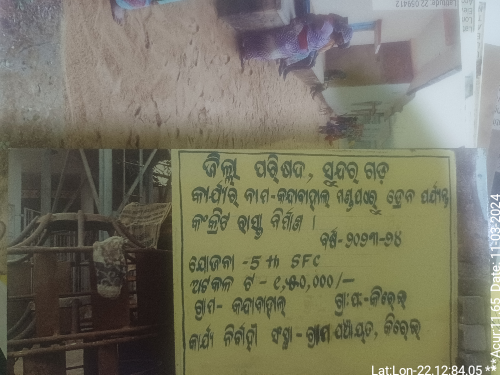 ଜିଲ୍ଲା ପରିଷଦ, ସୁନ୍ଦରଗଡ଼
କାର୍ଯ୍ୟର ନାମ-କନ୍ଦାବାହାଲ୍ ମଣ୍ଡପଠାରୁ ଡ୍ରେନ ପର୍ଯ୍ୟନ୍ତ
କଂକ୍ରିଟ ରାସ୍ତା ନିର୍ମାଣ ।
ବର୍ଷ-୨୦୨୩-୨୪
ଯୋଜନା -5th SFC
ଅଟକଳ ଟ - ୧,୫୦,୦୦୦/—
ଗ୍ରାମ- କନ୍ଦାବାହାଲ୍ ଗ୍ରା:ପଂ-କିରେଇ
କାର୍ଯ୍ୟ ନିର୍ବାହୀ ସଂସ୍ଥା-ଗ୍ରାମ ପଞ୍ଚାୟତ, କିରେଇ
Lat:Lon-22.12:84.05
Date: 11-03-2024
Latitude: 22.059412